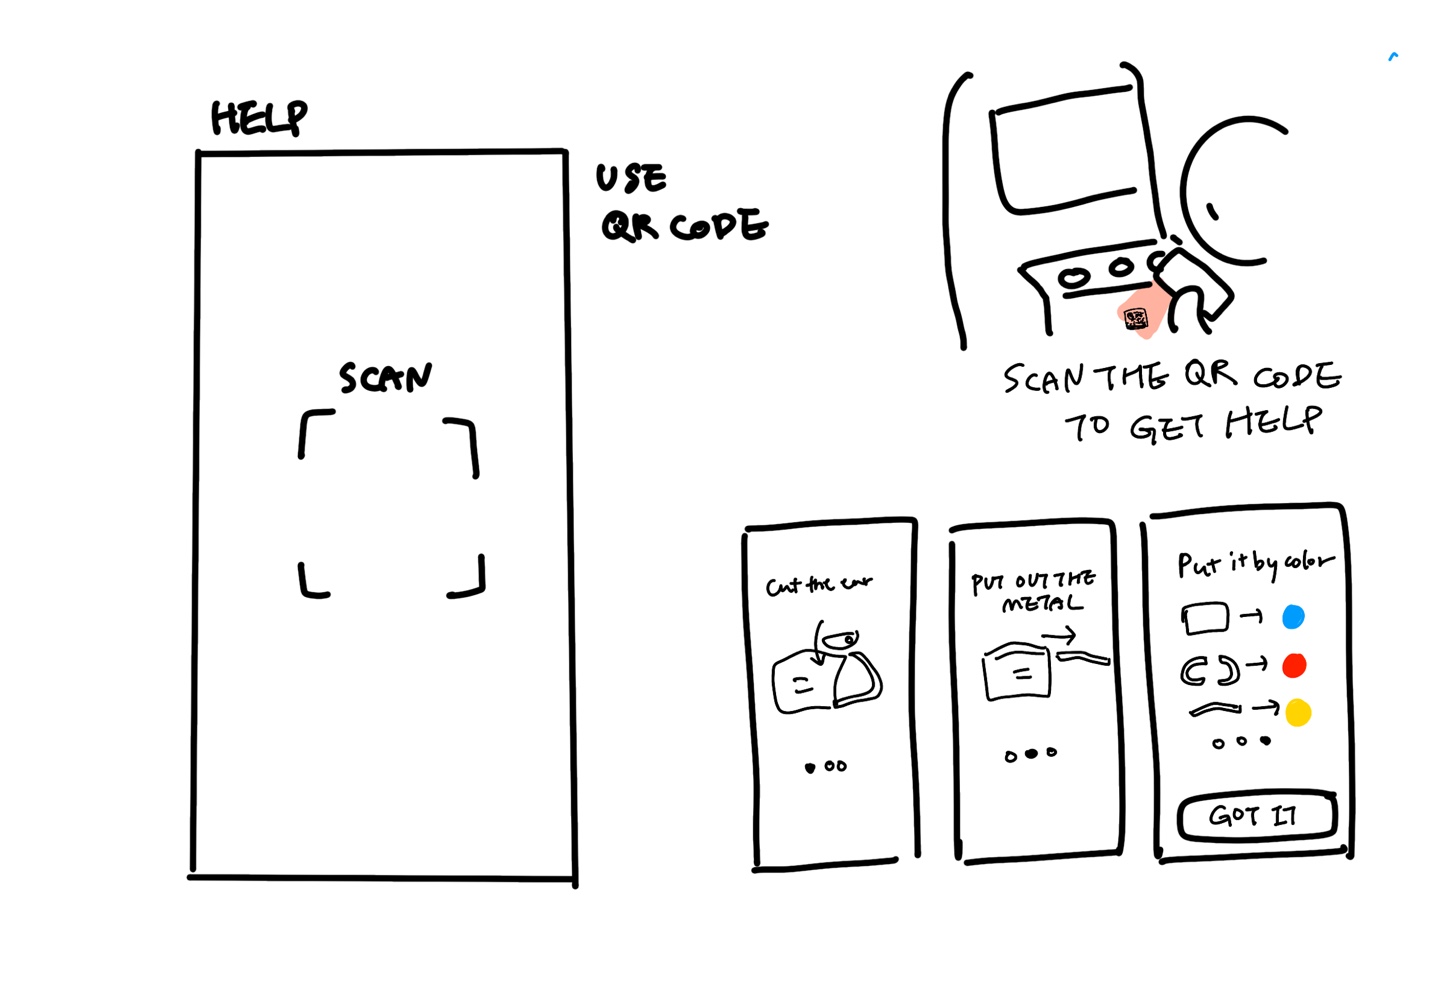 HELP
USE
QR CODE
SCAN
SCAN THE QR CODE
TO GET HELP
Cut the ear
PUT OUT THE
METAL
Put it by color
GOT IT